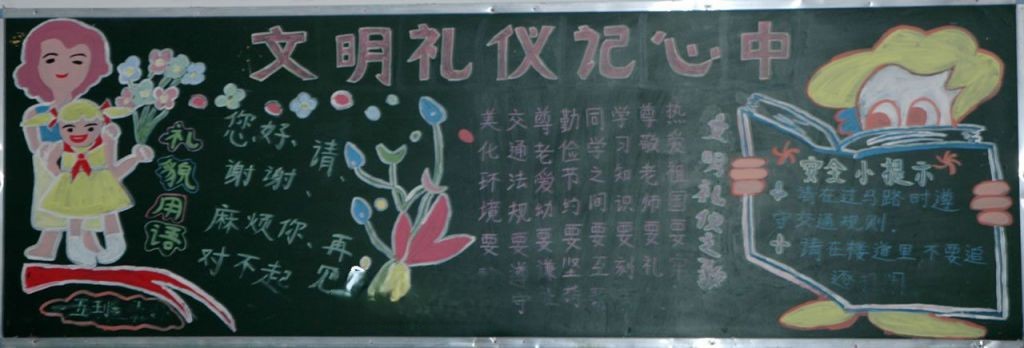 文明礼仪记心中
礼貌用语
您好、请、
谢谢、
麻烦你、再见
对不起
五班
文明礼仪之歌
热爱祖国要牢
尊敬老师要礼
学习知识要刻
同学之间要互
勤俭节约要坚持
尊老爱幼要谦
交通法规要遵守
美化环境要
安全小提示
请在过马路时遵
守交通规则.
请在楼道里不要追